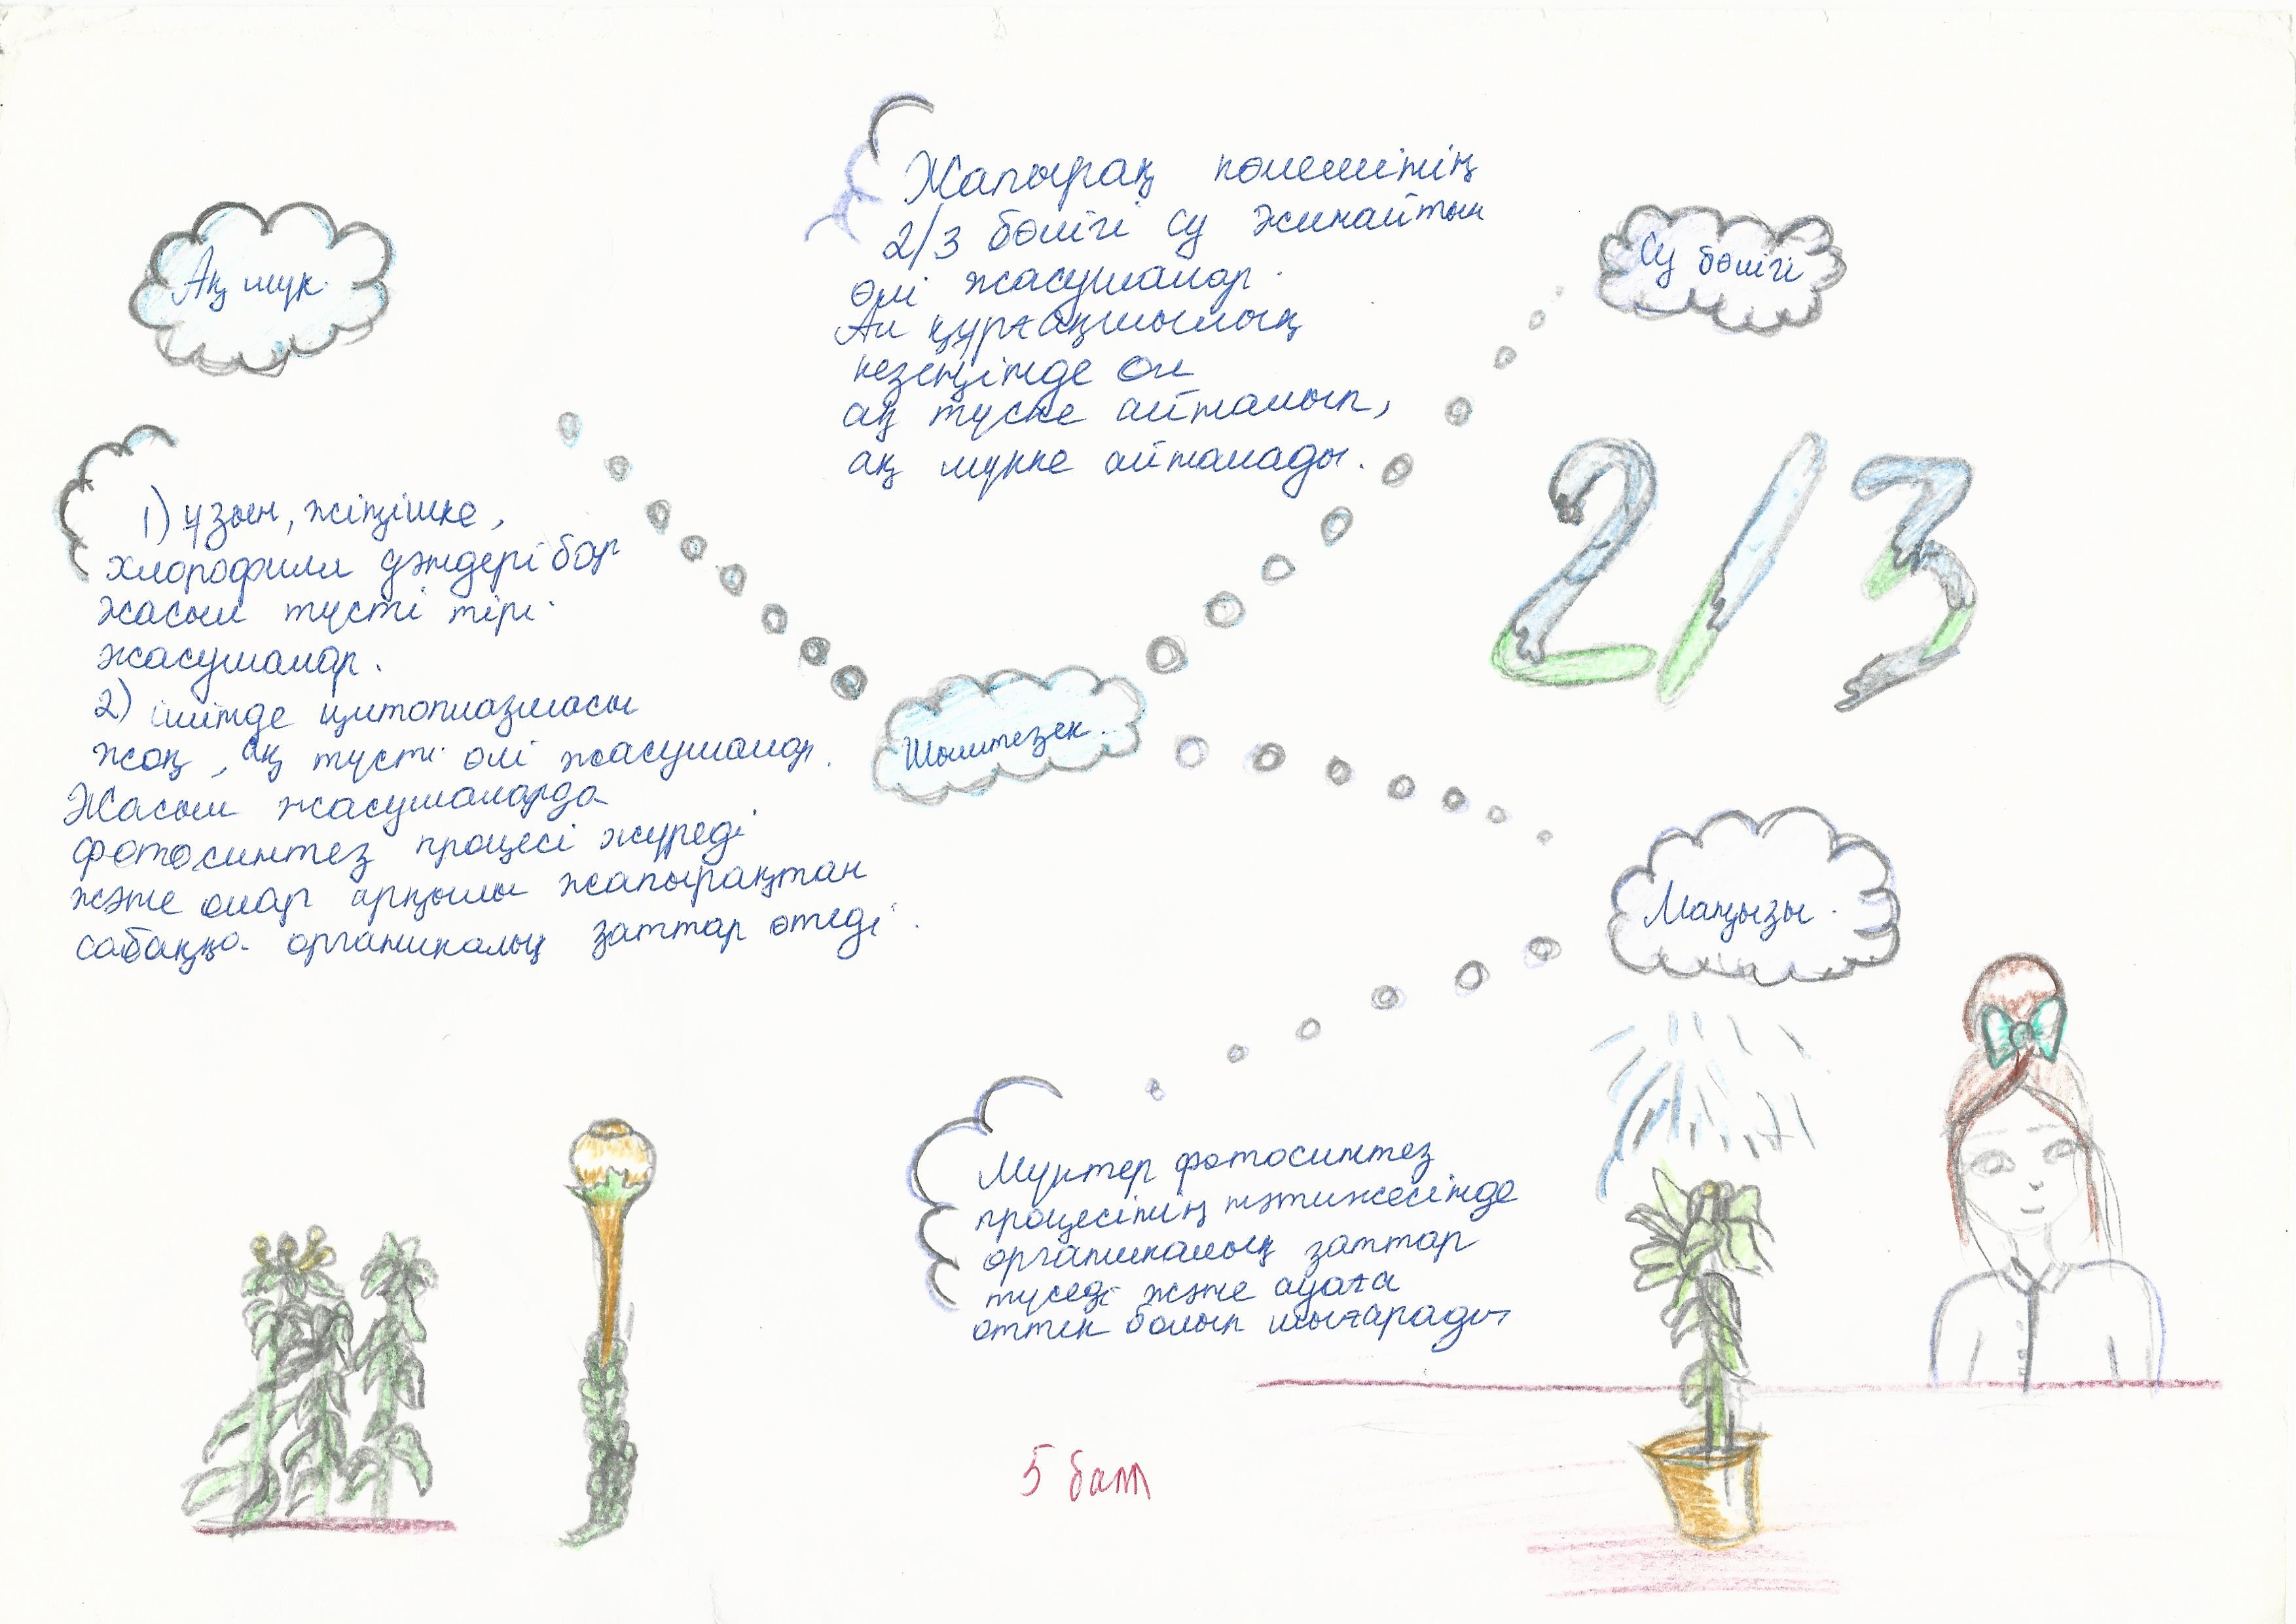 Ақ мүк.
1) ұзын, жіңішке,
хлорофилл дәндері бар
жасыл түсті тірі
жасушалар.
2) ішінде цитоплазмасы
жоқ, ақ түсті өлі жасушалар.
Жасыл жасушаларда
фотосинтез процесі жүреді
және олар арқылы жапырақтан
сабаққа органикалық заттар өтеді.
Жапырақ көлемінің
2/3 бөлігі су жинайтын
өлі жасушалар.
Ал құрғақшылық
кезеңінде ол
ақ түске айналып,
ақ мүкке айналады.
Су бөлігі
2/3
Шымтезек.
Маңызы.
Мүктер фотосинтез
процесінің нәтижесінде
органикалық заттар
түседі және ауаға
оттек болып шығарады
5 балл